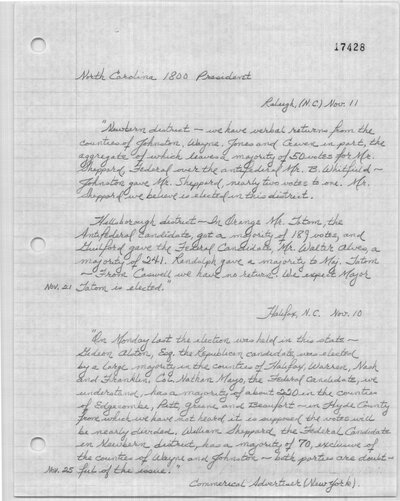 17428
North Carolina 1800 President
Raleigh, (N.C.) Nov. 11
"Newbern district — we have verbal returns from the
counties of Johnston, Wayne, Jones and Craven in part, the
aggregate of which leaves a majority of 50 votes for Mr.
Sheppard, Federal over the antifederal Mr. B. Whitfield —
Johnston gave Mr. Sheppard, nearly two votes to one. Mr.
Sheppard we believe is elected in this district.
Hillsborough district — In Orange Mr. Tatom, the
Antifederal candidate, got a majority of 189 votes, and
Guilford gave the Federal Candidate, Mr. Walter Alves, a
majority of 241. Randolph gave a majority to Maj. Tatom
— From Caswell we have no return. We expect Major
Nov. 21 Tatom is elected."
Halifax, N.C. Nov. 10
"On Monday last the election was held in this state —
Gideon Alston, Esq. the Republican candidate was elected
by a large majority in the counties of Halifax, Warren, Nash
and Franklin, Col. Nathan Mayo, the Federal Candidate, we
understand, has a majority of about 220 in the counties
of Edgecombe, Pitt, Greene and Beaufort — in Hyde County
from which we have not heard it is supposed the votes will
be nearly divided. William Sheppard, the Federal Candidate
in Newbern district, has a majority of 70, exclusive of
the counties of Wayne and Johnston — both parties are doubt-
Nov. 25 ful of the issue."
Commercial Advertiser (New York).